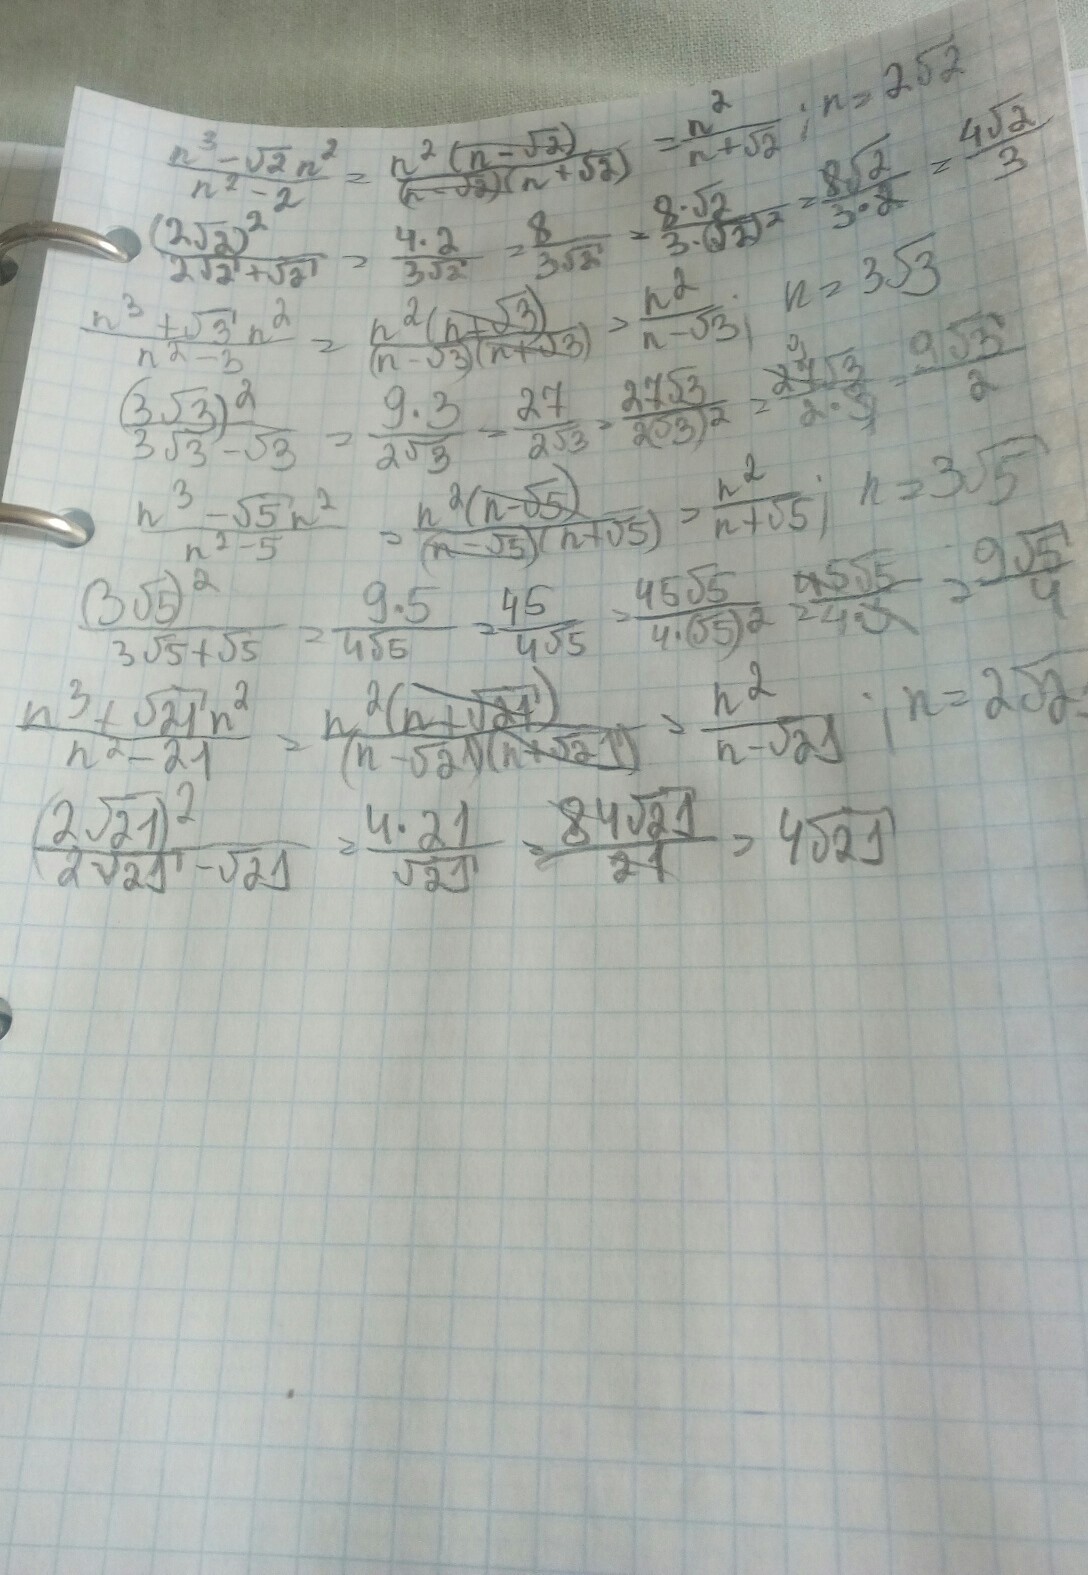 (n³ - √2 n²)/(n² - 2) = (n²(n - √2))/((n - √2)(n + √2)) = n²/(n + √2); n = 2√2
(2√2)²/(2√2 + √2) = (4·2)/(3√2) = 8/(3√2) = (8·√2)/(3·(√2)²) = (8√2)/(3·2) = (4√2)/3
(n³ + √3 n²)/(n² - 3) = (n²(n + √3))/((n - √3)(n + √3)) = n²/(n - √3); n = 3√3
(3√3)²/(3√3 - √3) = (9·3)/(2√3) = 27/(2√3) = (27√3)/(2(√3)²) = (27√3)/(2·3) = (9√3)/2
(n³ - √5 n²)/(n² - 5) = (n²(n - √5))/((n - √5)(n + √5)) = n²/(n + √5); n = 3√5
(3√5)²/(3√5 + √5) = (9·5)/(4√5) = 45/(4√5) = (45√5)/(4·(√5)²) = (45√5)/(4·5) = (9√5)/4
(n³ + √21 n²)/(n² - 21) = (n²(n + √21))/((n - √21)(n + √21)) = n²/(n - √21); n = 2√2
(2√21)²/(2√21 - √21) = (4·21)/√21 = (84√21)/21 = 4√21